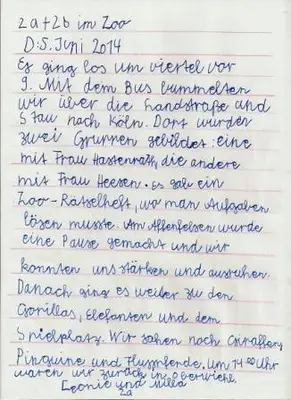 2a+2b im Zoo
D:5. Juni 2014
Es ging los um viertel vor
9. Mit dem Bus bummelten
wir über die Landstraße und
Stau nach Köln. Dort wurden
zwei Gruppen gebildet: eine
mit Frau Hastenrath, die andere
mit Frau Heesen. Es gab ein
Zoo-Rätselheft, wo man Aufgaben
lösen musste. Am Affenfelsen wurde
eine Pause gemacht und wir
konnten uns stärken und ausruhen.
Danach ging es weiter zu den
Gorillas, Elefanten und dem
Spielplatz. Wir sahen noch Giraffen,
Pinguine und Flusspferde. Um 14 00 Uhr
waren wir zurück in
Leonie und Milla
2a